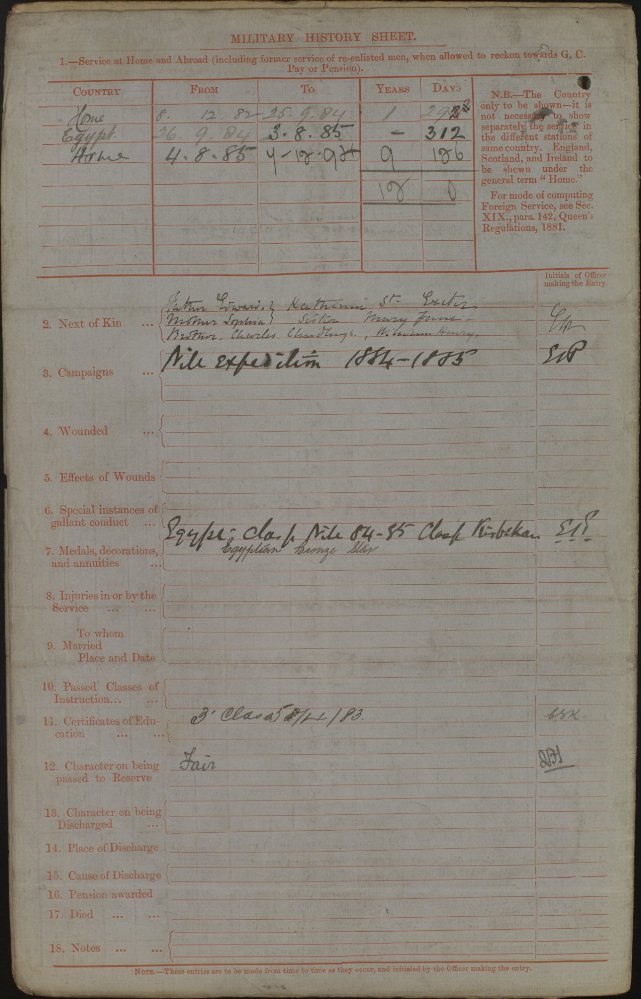 MILITARY HISTORY SHEET.
1.—Service at Home and Abroad (including former service of re-enlisted men, when allowed to reckon towards G. C.
Pay or Pension).
COUNTRY FROM TO YEARS DAYS
Home 8. 12. 82 25. 9. 84 1
Egypt. 26. 9. 84 3. 8. 85 - 312
Home 4. 8. 85 9 126
12 0
N.B.—The Country
only to be shown—it is
not necessary to show
separately the service in
the different stations of
same country. England,
Scotland, and Ireland to
be shewn under the
general term "Home."
For mode of computing
Foreign Service, see Sec.
XIX., para. 142, Queen's
Regulations, 1881.
Initials of Officer
making the Entry.
Father Edward St. Exeter
2. Next of Kin ... Mother Sophia Sister Mary Jane
Brothers. Charles, William Henry.
3. Campaigns ... Nile Expedition 1884-1885
4. Wounded ...
5. Effects of Wounds
6. Special instances of
gallant conduct ...
Egypt: Clasp Nile 84-85 Clasp Kirbekan
7. Medals, decorations, Egyptian bronze Star
and annuities ...
8. Injuries in or by the
Service ... ...
To whom
9. Married
Place and Date
10. Passed Classes of
Instruction... ...
11. Certificates of Edu- 3' Class
cation ... ...
12. Character on being Fair
passed to Reserve
13. Character on being
Discharged ...
14. Place of Discharge
15. Cause of Discharge
16. Pension awarded
17. Died ... ...
18. Notes ... ...
NOTE.—These entries are to be made from time to time as they occur, and initialed by the Officer making the entry.